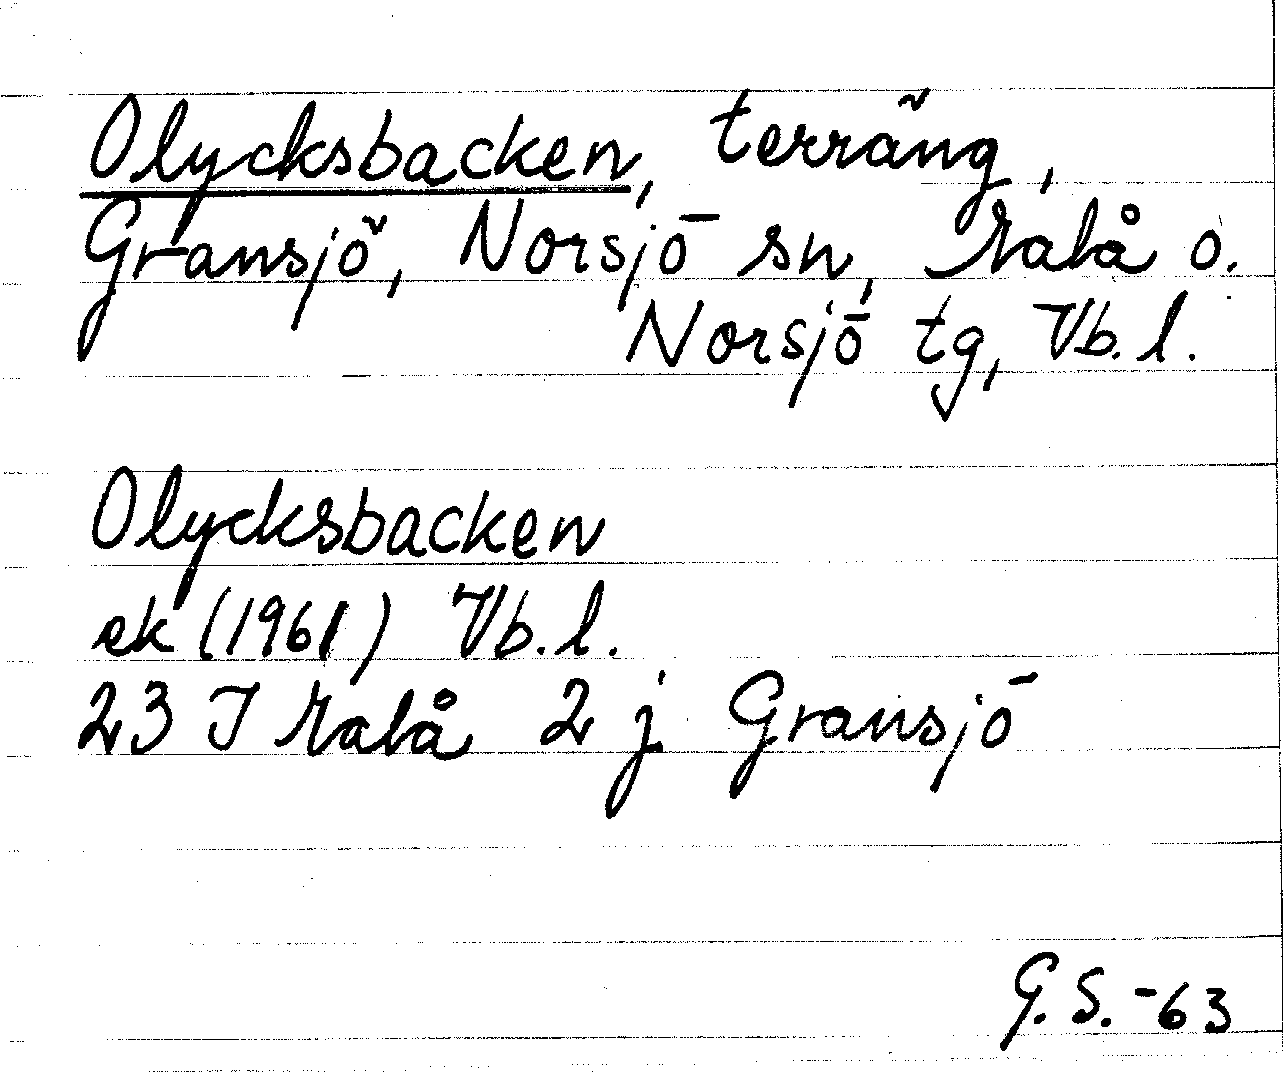 Olycksbacken, terräng,
Gransjö, Norsjö sn, Malå o.
Norsjö tg, Vb. l.
Olycksbacken
ek (1961) Vb. l.
23 I Malå 2 j Gransjö
G. S. -63